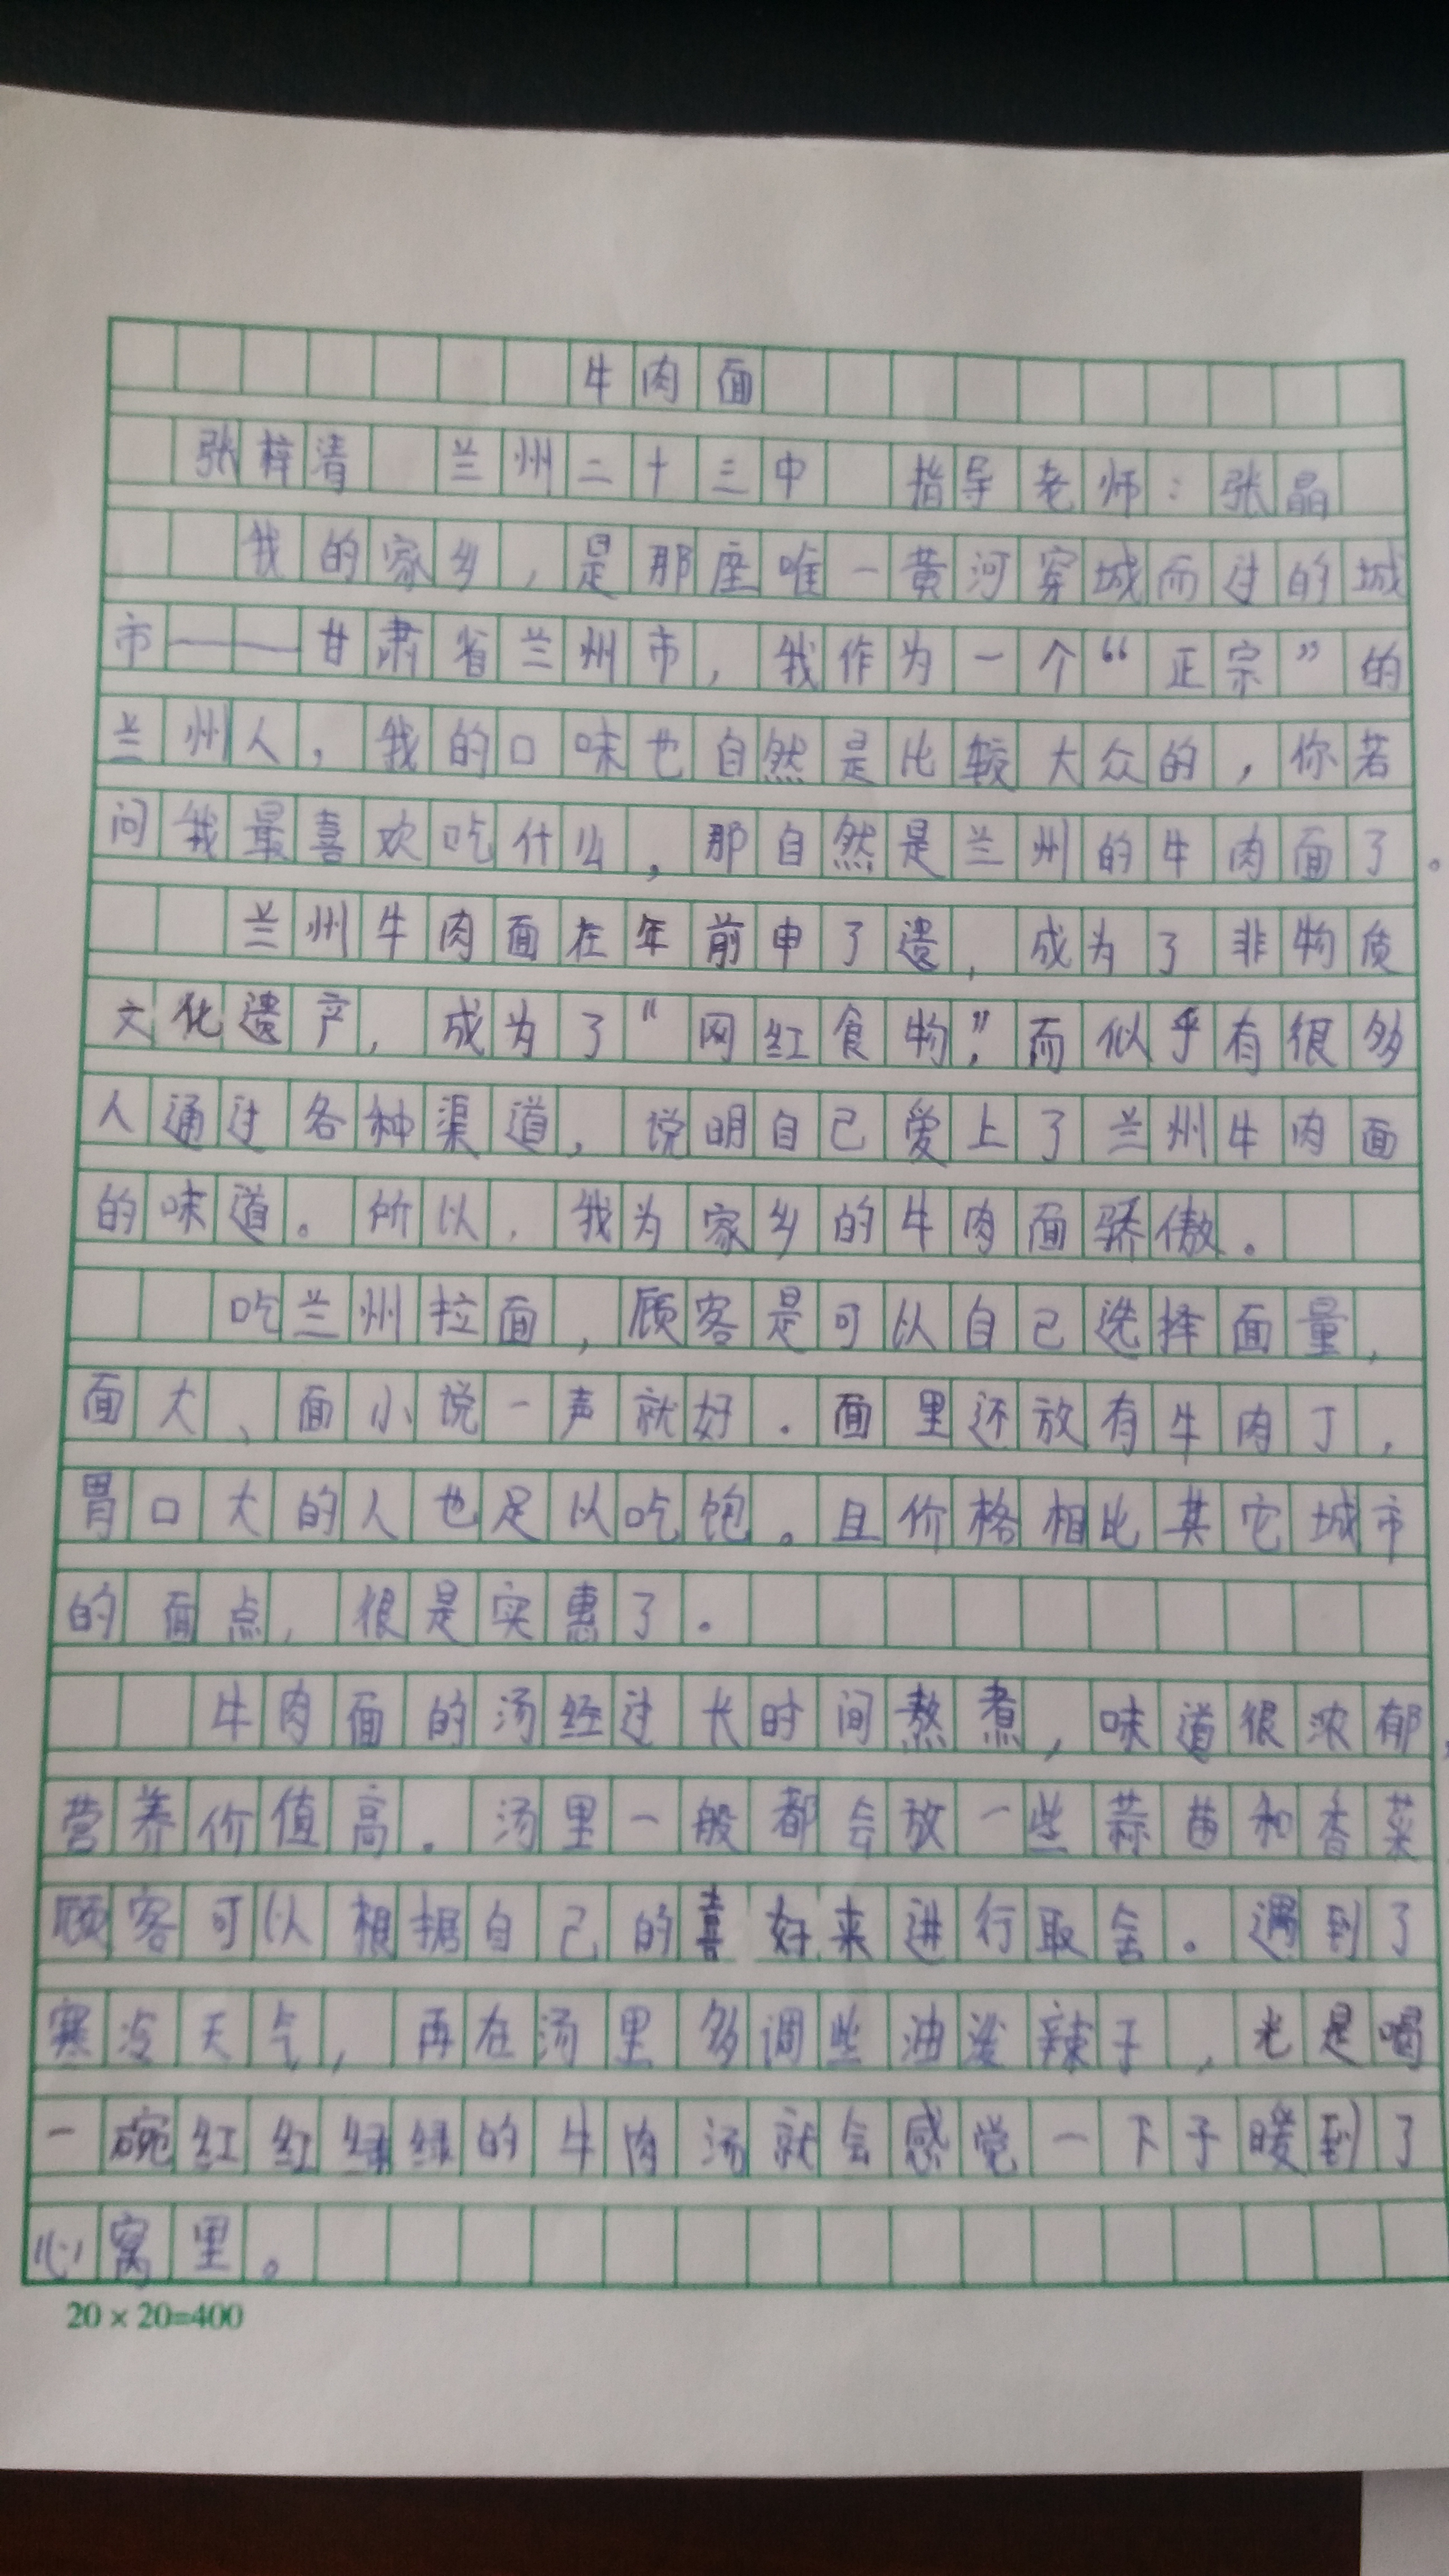 牛肉面
张梓清 兰州二十三中 指导老师：张晶
我的家乡，是那座唯一黄河穿城而过的城
市——甘肃省兰州市，我作为一个“正宗”的
兰州人，我的口味也自然是比较大众的，你若
问我最喜欢吃什么，那自然是兰州的牛肉面了。
兰州牛肉面在年前申了遗，成为了非物质
文化遗产，成为了“网红食物”，而似乎有很多
人通过各种渠道，说明自己爱上了兰州牛肉面
的味道。所以，我为家乡的牛肉面骄傲。
吃兰州拉面，顾客是可以自己选择面量，
面大、面小说一声就好．面里还放有牛肉丁，
胃口大的人也足以吃饱。且价格相比其它城市
的面点，很是实惠了。
牛肉面的汤经过长时间熬煮，味道很浓郁，
营养价值高。汤里一般都会放一些蒜苗和香菜
顾客可以根据自己的喜好来进行取舍。遇到了
寒冷天气，再在汤里多调些油泼辣子，光是喝
一碗红红绿绿的牛肉汤就会感觉一下子暖到了
心窝里。
20×20=400